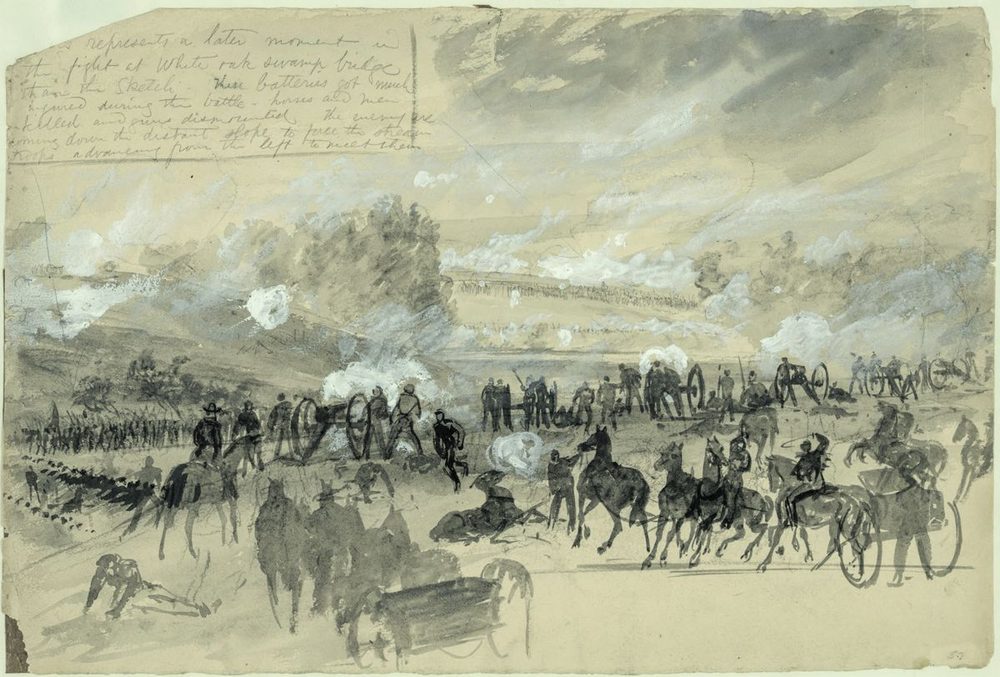 represents a later moment in
the fight at White oak swamp bridge
than the Sketch. batteries got much
injured during the battle - horses and men
killed and guns dismounted the enemy are
coming down the distant slope to force the stream
troops advancing from the left to meet them